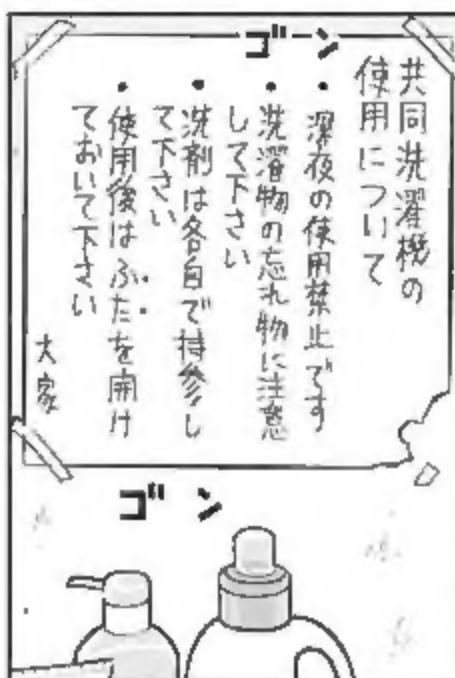 ゴン
共同洗濯機の
使用について
・深夜の使用禁止です
・洗濯物の忘れ物に注意
して下さい
・洗剤は各自で持参し
て下さい
・使用後はふたを開け
ておいて下さい
大家
ゴン